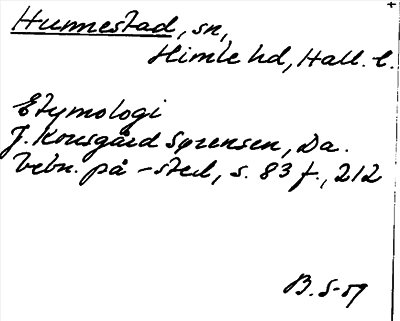 Hunnestad, sn,
Himle hd, Hall. l.
Etymologi
J. Kousgård Sørensen, Da.
bebn. på -sted, s. 83 f., 212
B. S-59